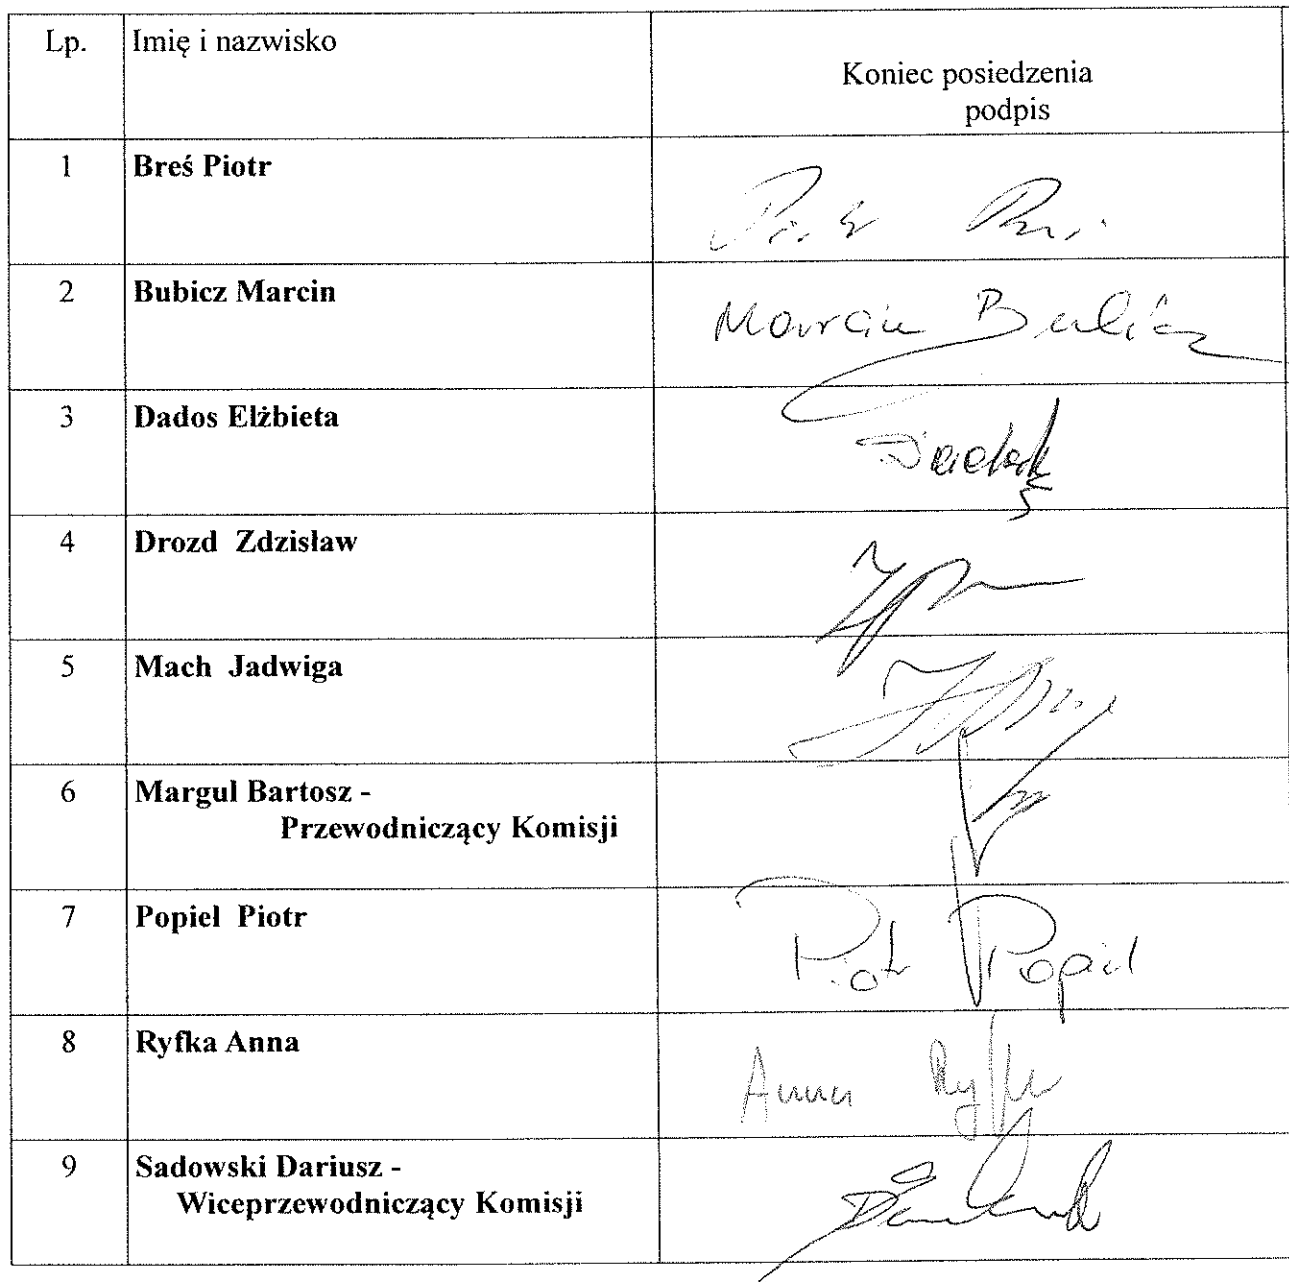 Lp. Imię i nazwisko
Koniec posiedzenia
podpis
1 Breś Piotr
2 Bubicz Marcin
Marcin Bubicz
3 Dados Elżbieta
4 Drozd Zdzisław
5 Mach Jadwiga
6 Margul Bartosz -
Przewodniczący Komisji
7 Popiel Piotr
Piotr Popiel
8 Ryfka Anna
Anna Ryfka
9 Sadowski Dariusz -
Wiceprzewodniczący Komisji